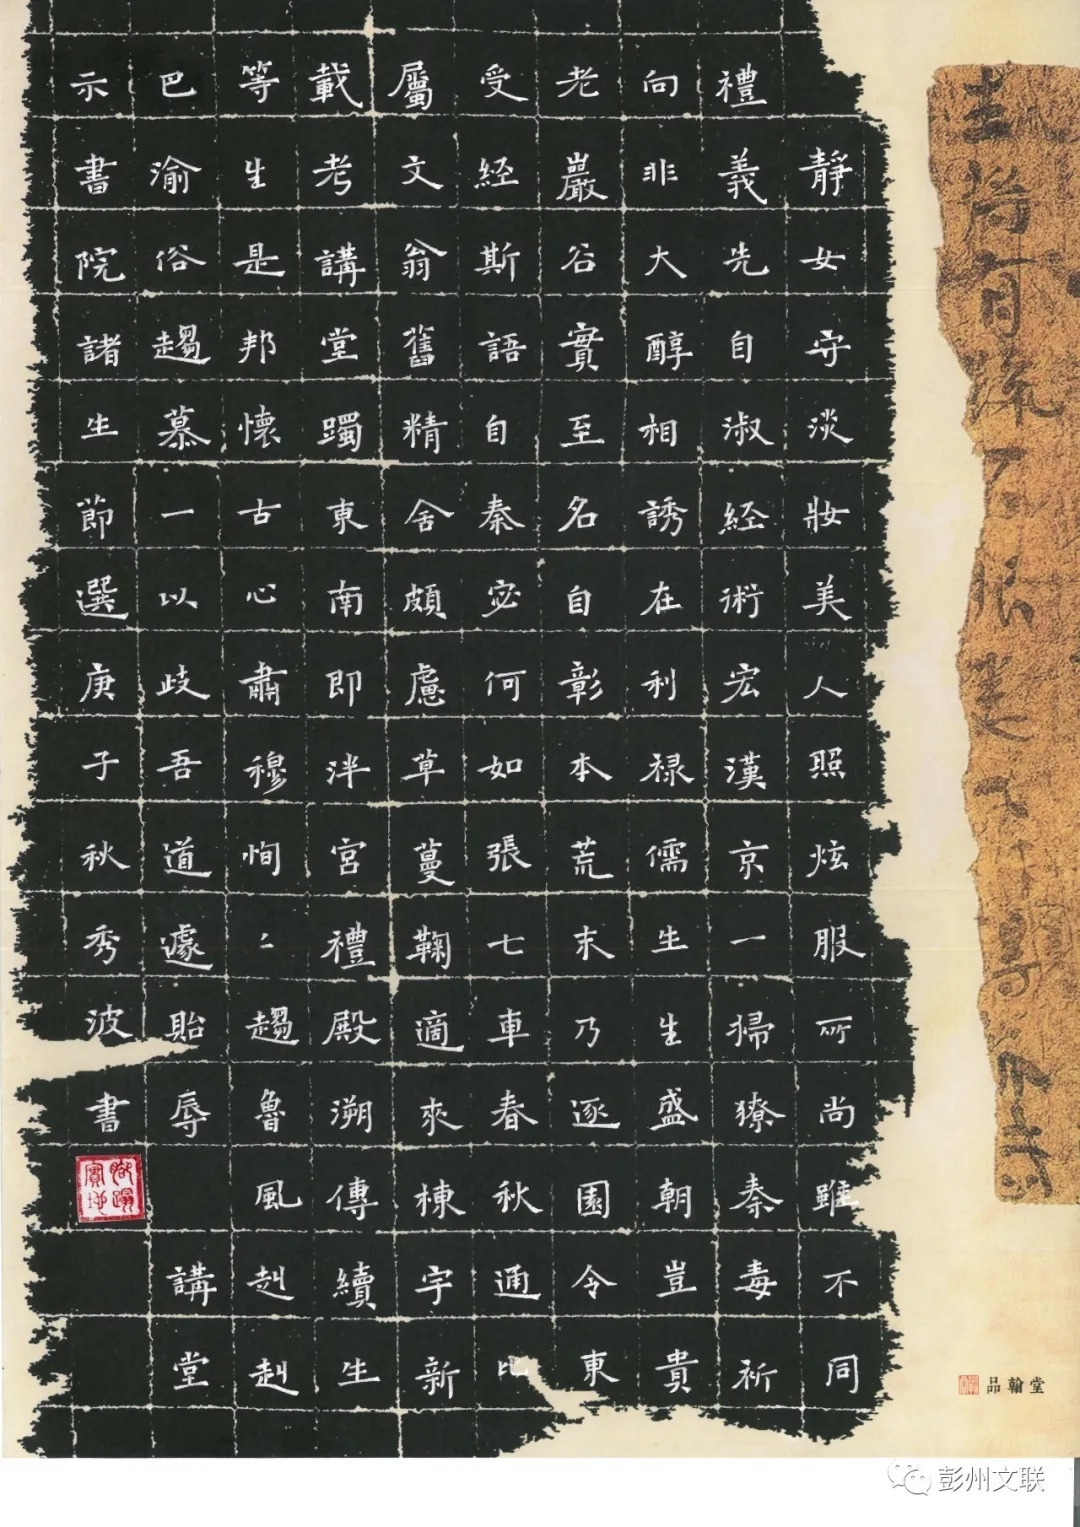 靜女守淡妝美人照炫服所尚雖不同
禮義先自淑經術宏漢京一掃獠秦毒祈
向非大醇相誘在利禄儒生生盛朝豈貴
老巖谷實至名自彰本荒末乃逐園令東
受經斯語自秦宓何如張七車春秋通比
屬文翁舊精舍頗慮草蔓鞠適來棟宇新
載考講堂躅東南即泮宮禮殿溯傳續生
等生是邦懷古心肅穆恂〻趨魯風赳赳
巴渝俗趨慕一以歧吾道遽貽辱 講堂
示書院諸生節選庚子秋秀波書
品翰堂
彭州文联